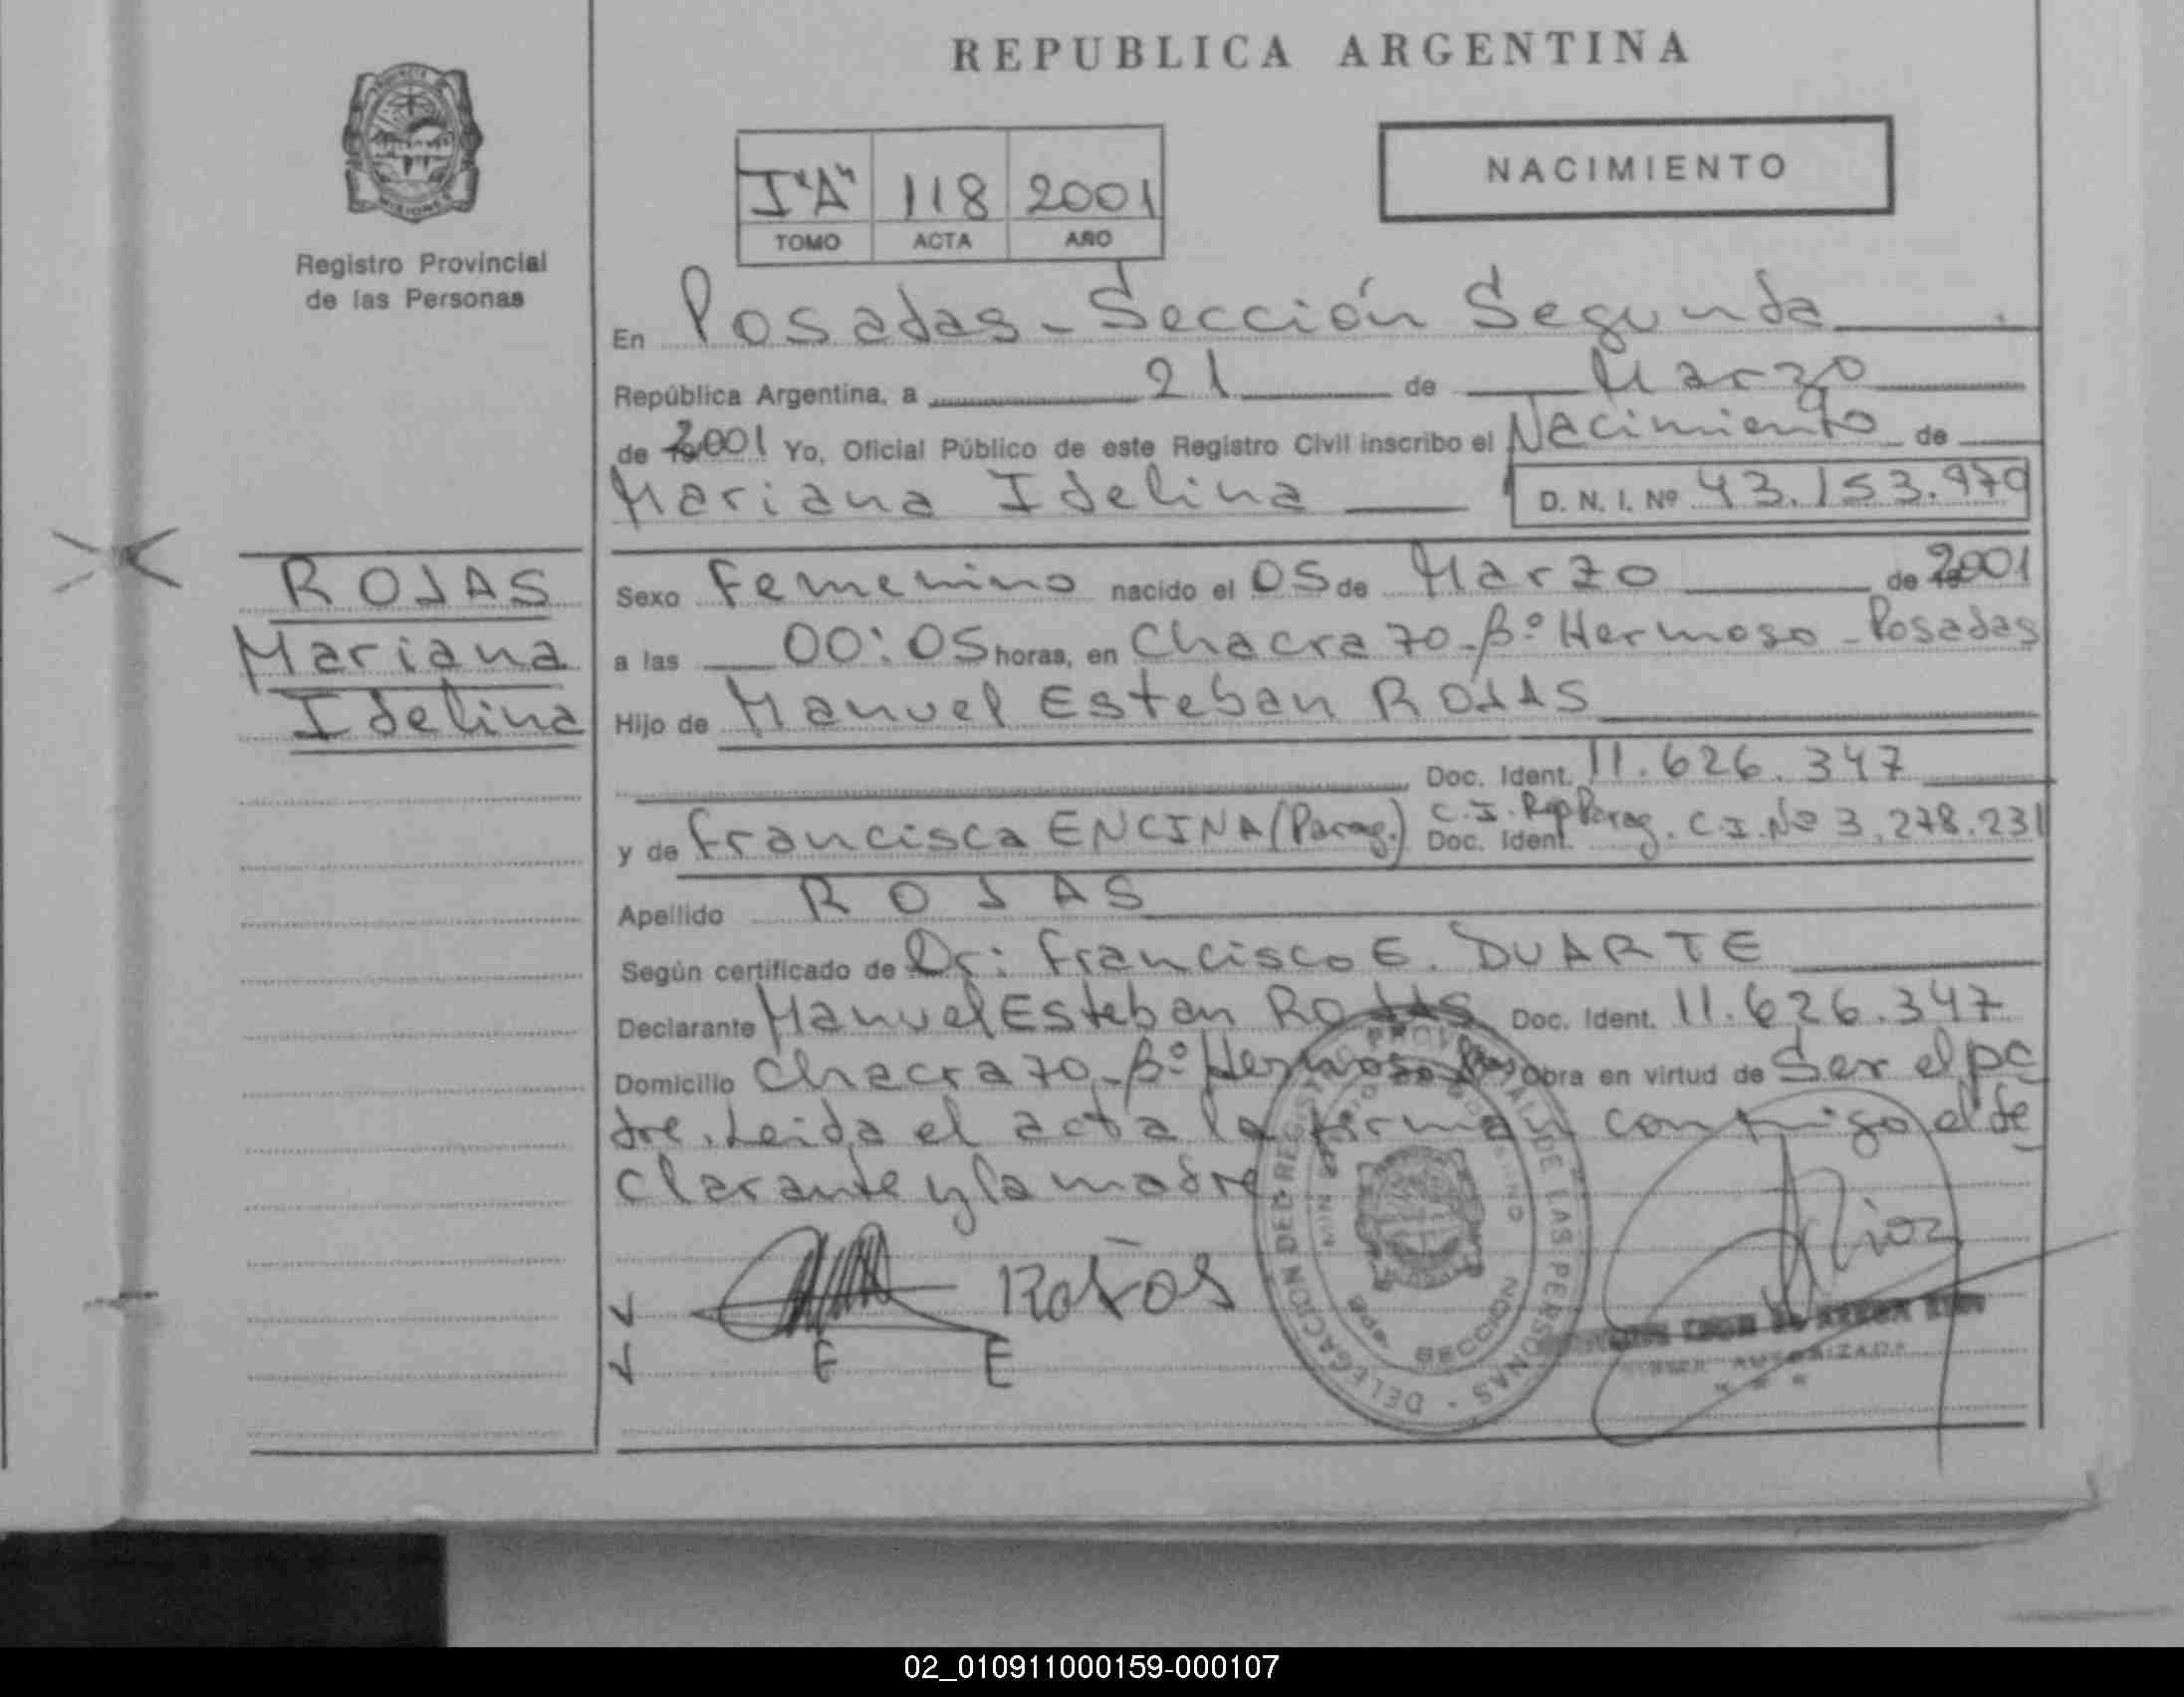 REPUBLICA ARGENTINA
NACIMIENTO
I "A" 118 2001
TOMO ACTA AÑO
Registro Provincial
de las Personas
En Posadas - Sección Segunda
República Argentina, a 21 de Marzo
de 2001 Yo, Oficial Público de este Registro Civil inscribo el Nacimiento de
Mariana Idelina D. N. I. Nº 43.153.970
ROJAS
Mariana
Idelina
Sexo Femenino nacido el 05 de Marzo de 2001
a las 00:05 horas, en Chacra 70 - Bº Hermoso - Posadas
Hijo de Manuel Esteban ROJAS
Doc. Ident. 11.626.347
y de Francisca ENCINA (Parag.) Doc. Ident. C.I. Rep Parag. C.I. Nº 3.278.231
Apellido ROJAS
Según certificado de Dr: Francisco E. DUARTE
Declarante Manuel Esteban ROJAS Doc. Ident. 11.626.347
Domicilio Chacra 70 - Bº Hermoso Obra en virtud de Ser el pa
dre. Leida el acta la firman conmigo el de
clarante y la madre.
DELEGACION DEL REGISTRO PROVINCIAL DE LAS PERSONAS
SECCION
F E
AUTORIZADA
02_010911000159-000107